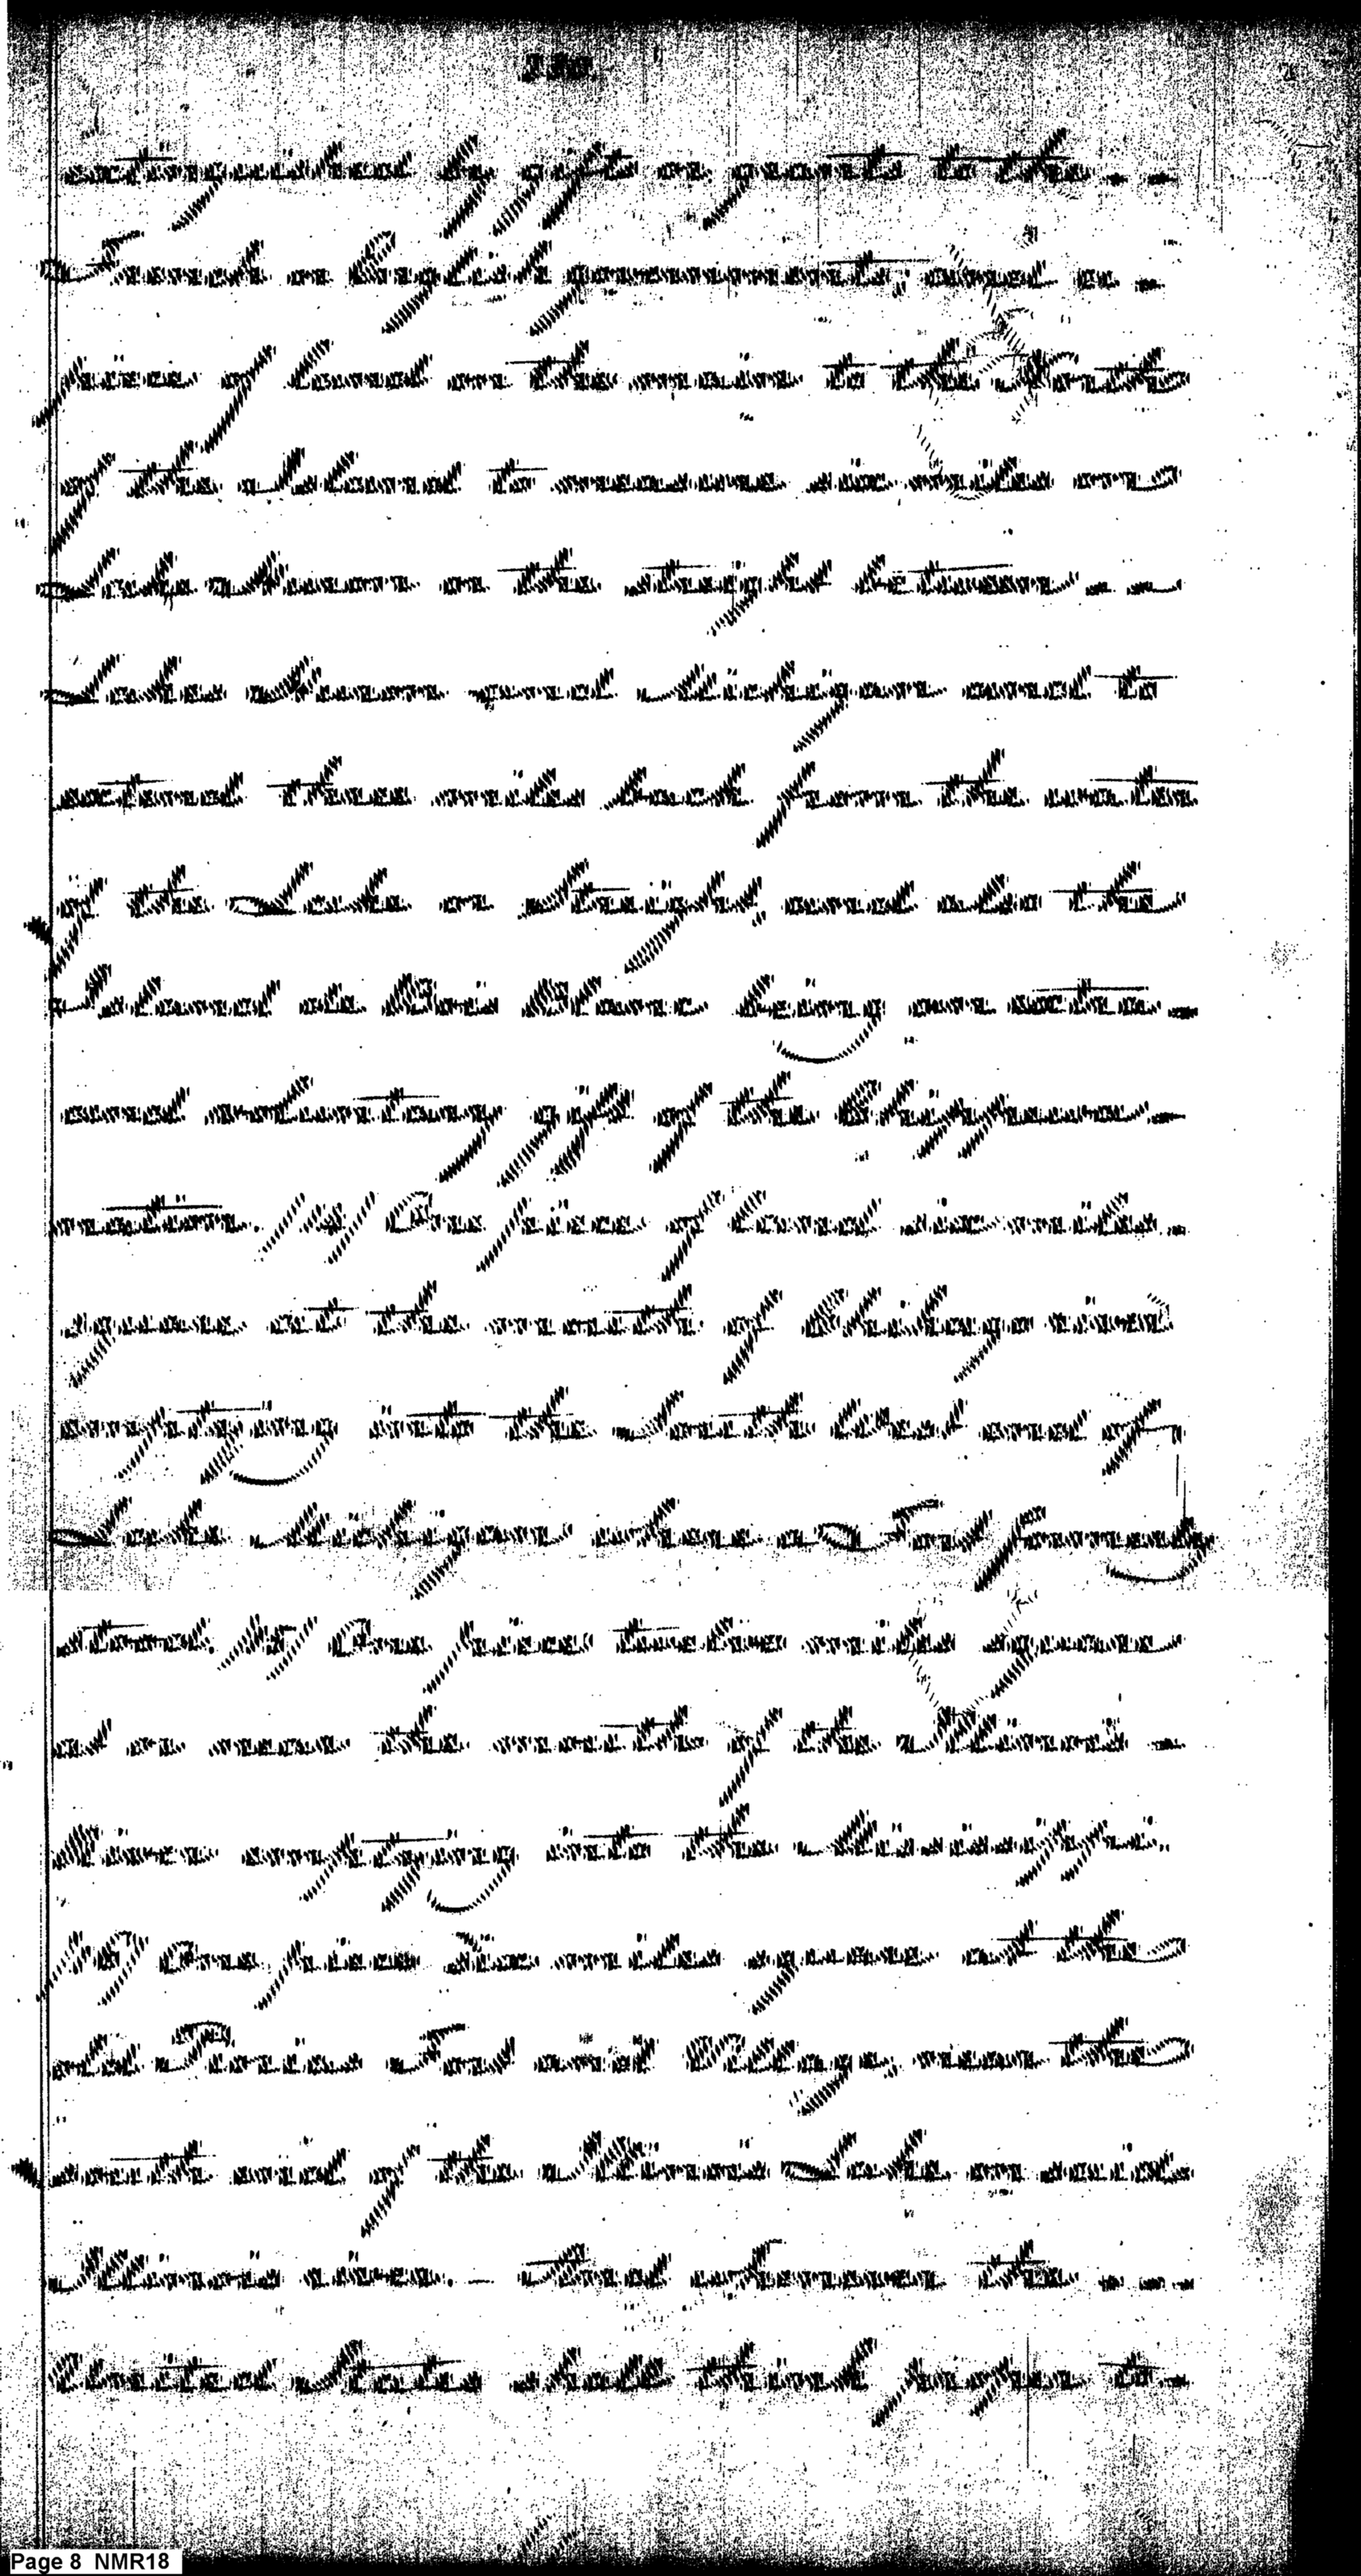 extinguished by gifts or grants to the - -
French or English governments; and a -
piece of land on the main to the North
of the island to measure six miles on
Lake Huron or the streight between - -
Lakes Huron and Michigan and to
extend three miles back from the water
of the Lake or Streight, and also the
Island de Bois Blanc being an extra -
and voluntary gift of the Chippewa -
nation. 14) One piece of land six miles -
square at the mouth of Chikago river
emptying into the South west end of
Lake Michigan where a Fort formerly
stood. 15) One piece twelve miles square
at or near the mouth of the Illinois -
River emptying into the Mississippi.
16) One piece six miles square at the
old Piorias Fort and Village, near the
south end of the Illinois Lake on said
Illinois river. - And whenever the - -
United States shall think proper to -
Page 8 NMR18